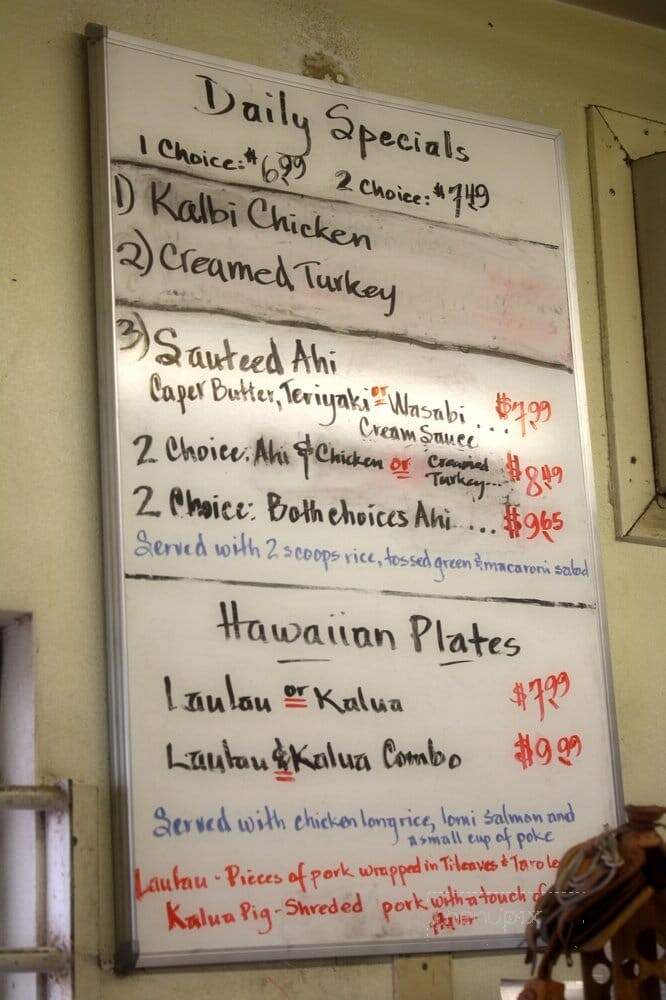 Daily Specials
1 Choice: $6.99 2 Choice: $7.49
1) Kalbi Chicken
2) Creamed Turkey
3) Sauteed Ahi
Caper Butter, Teriyaki or Wasabi ... $7.99
Cream Sauce
2 Choice: Ahi & Chicken or Creamed $8.49
Turkey....
2 Choice: Both choices Ahi.... $9.65
Served with 2 scoops rice, tossed green & macaroni salad
Hawaiian Plates
Laulau or Kalua $7.99
Laulau & Kalua Combo $9.99
Served with chicken longrice, lomi salmon and
a small cup of poke
Laulau - Pieces of pork wrapped in Ti leaves & Taro
Kalua Pig - Shredded pork with a touch of
menupix